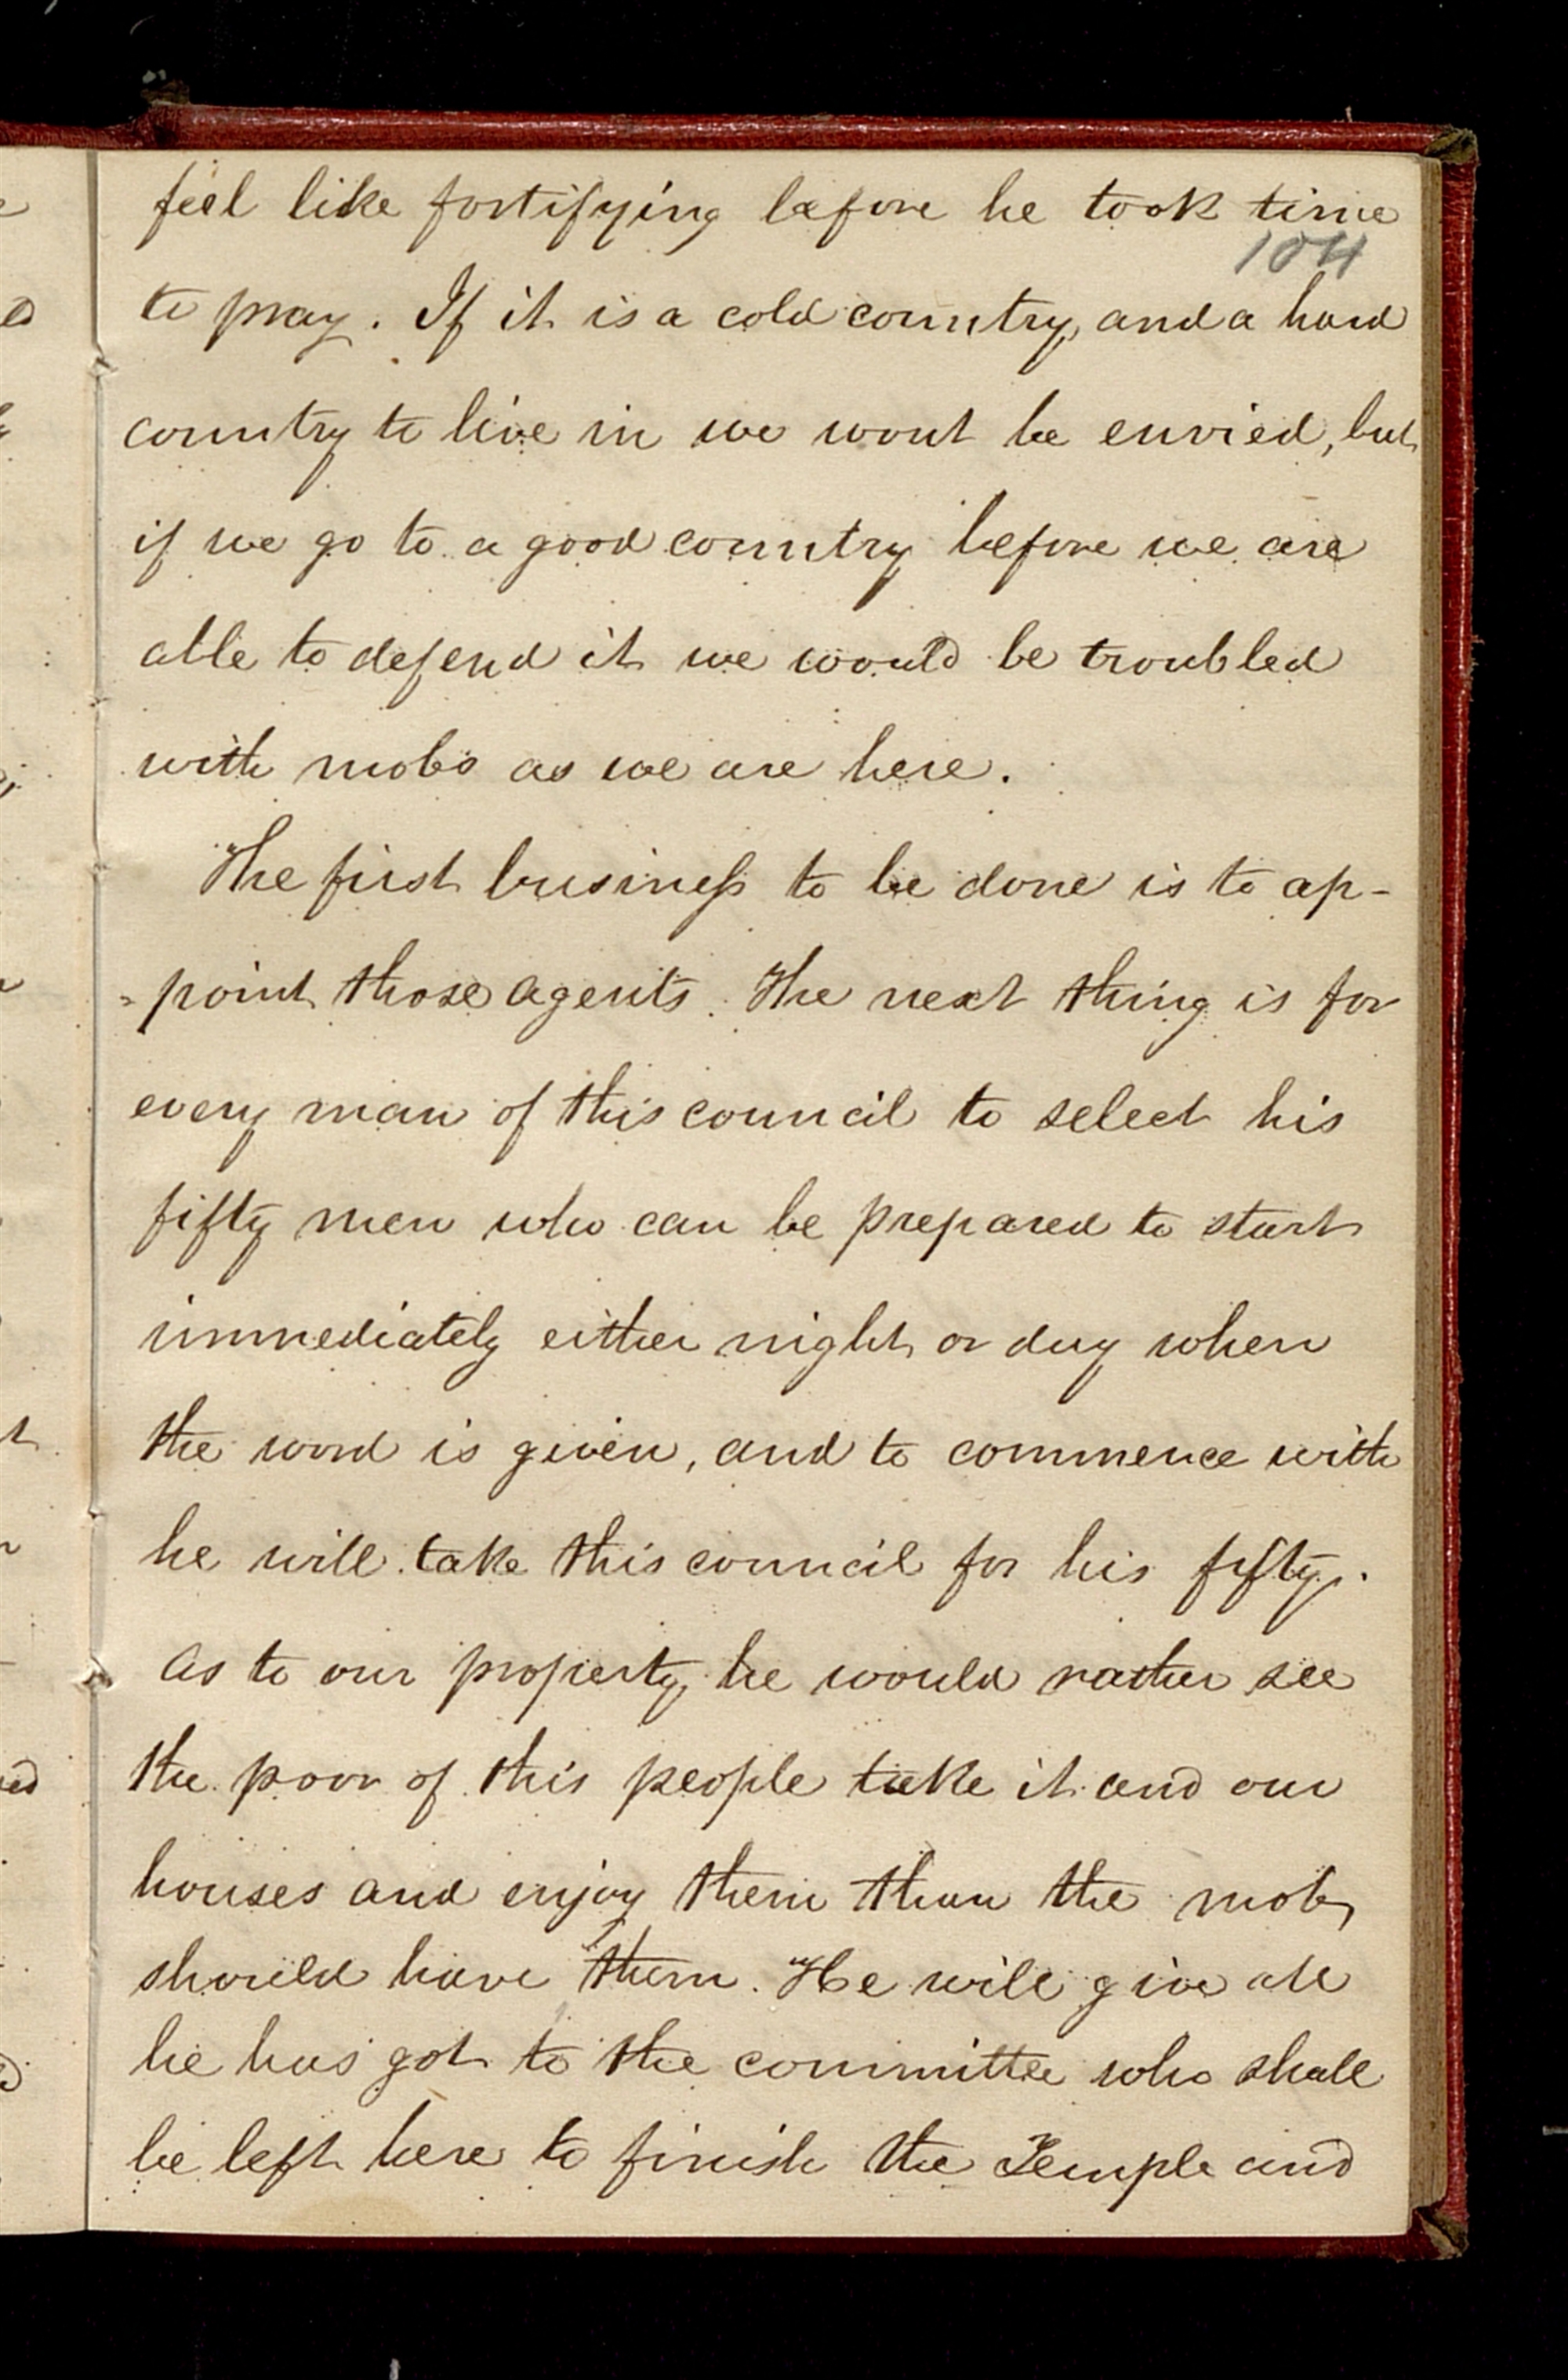 feel like fortifying before he took time
104
to pray. If it is a cold country, and a hard
country to live in we wont be envied, but
if we go to a good country before we are
able to defend it we would be troubled
with mobs as we are here.
The first business to be done is to ap-
-point those agents. The next thing is for
every man of this council to select his
fifty men who can be prepared to start
immediately either night or day when
the word is given, and to commence with
he will take this council for his fifty.
As to our property, he would rather see
the poor of this people take it and our
houses and enjoy them than the mob,
should have them. He will give all
he has got to the committee who shall
be left here to finish the Temple and